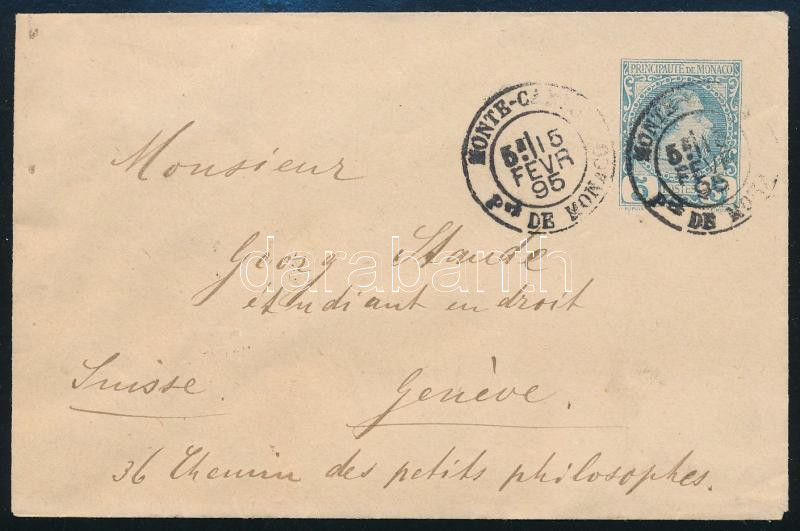 PRINCIPAUTÉ DE MONACO
MONTE-CARLO
15
FEVR
95
Pté DE MONACO
MONTE
FEVR
95
DE
5
Monsieur
Georg Staude
étudiant en droit
Suisse. Genève.
36 Chemin des petits philosophes.
darabanth